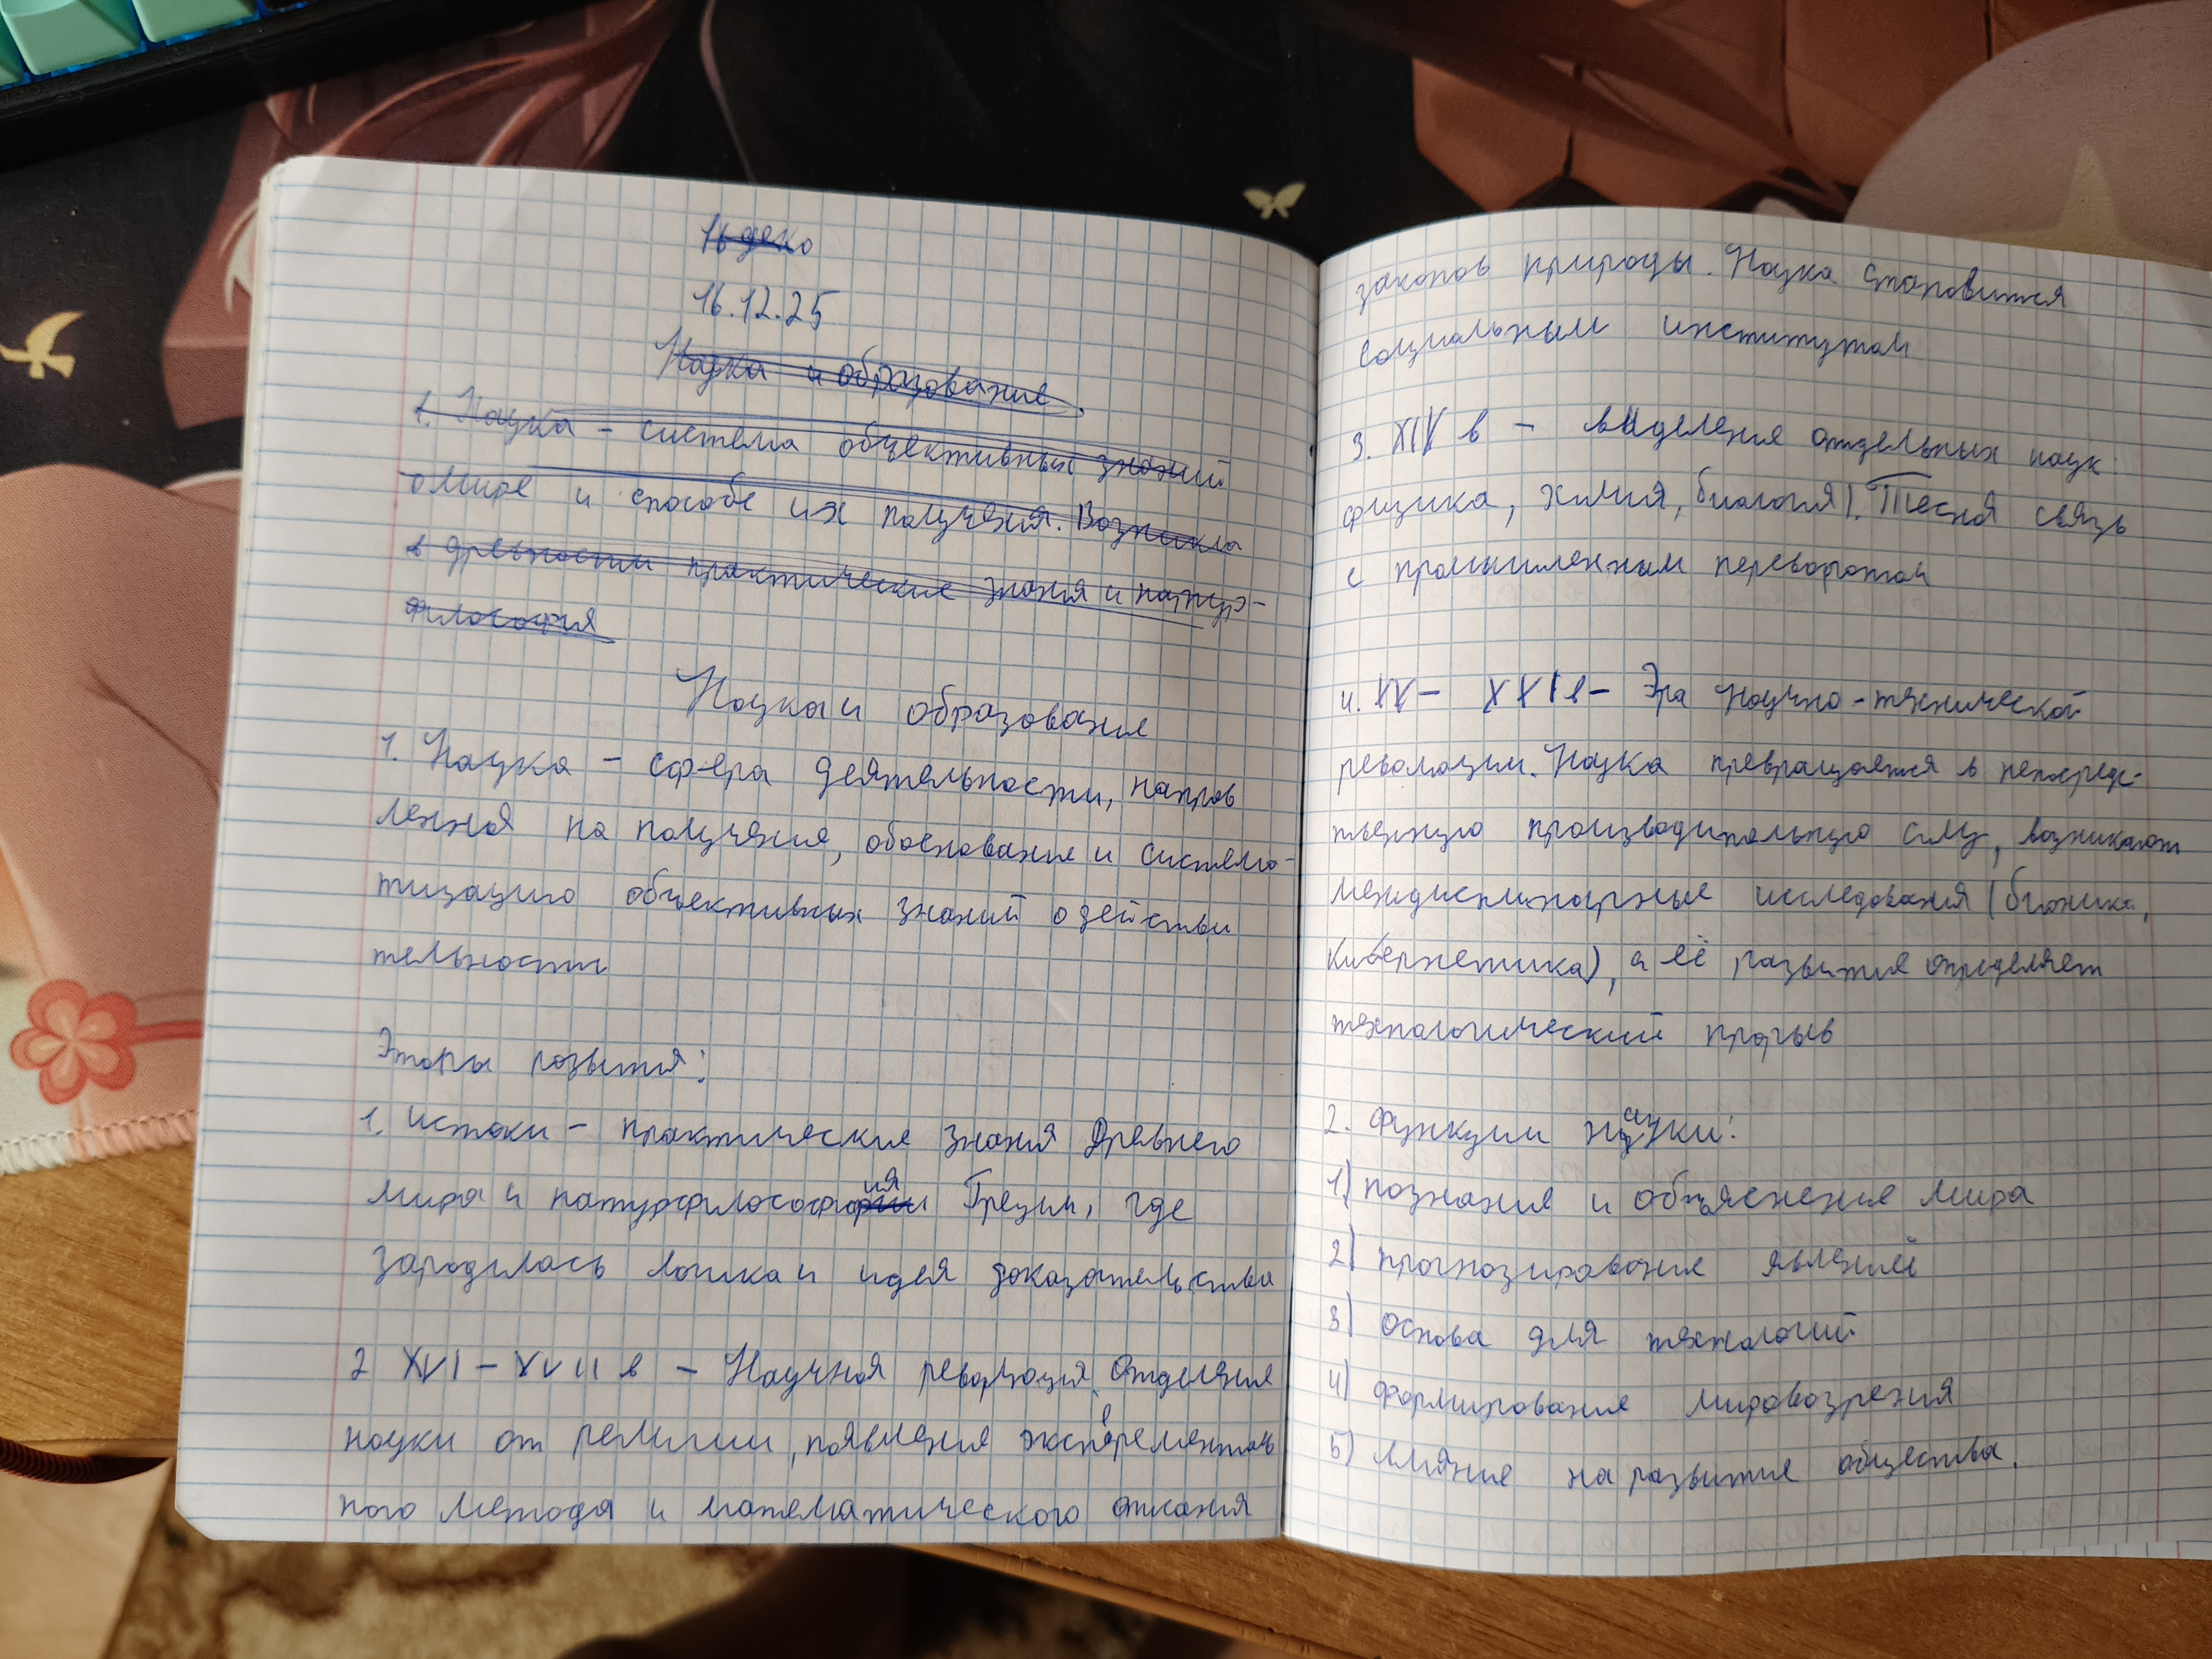 16 деко
16.12.25
Наука и образование
1. Наука - система объективных знаний
о мире и способе их получения. Возникла
в древности практические знания и натур-
философия
Наука и образование
1. Наука - сфера деятельности, направ
ленная на получение, обоснование и система-
тизацию объективных знаний о действи
тельности
Этапы развития:
1. Истоки - практические знания Древнего
мира и натурфилософия Греции, где
зародилась логика и идея доказательства
2 XVI - XVII в - Научная революция. Отделение
науки от религии, появление эксперементаль
ного метода и математического описания
законов природы. Наука становится
социальным институтом
3. XIV в - выделение отдельных наук:
физика, химия, биология). Тесная связь
с промышленным переворотом
4. XX - XXI в - Эра научно-технической
революции. Наука превращается в непосредс-
твенную производительную силу, возникают
междисциплинарные исследования (бионика,
кибернетика), а её развитие определяет
технологический прорыв
2. Функции науки:
1) познание и объяснение мира
2) прогнозирование явлений
3) основа для технологий
4) формирование мировозрения
5) влияние на развитие общества.